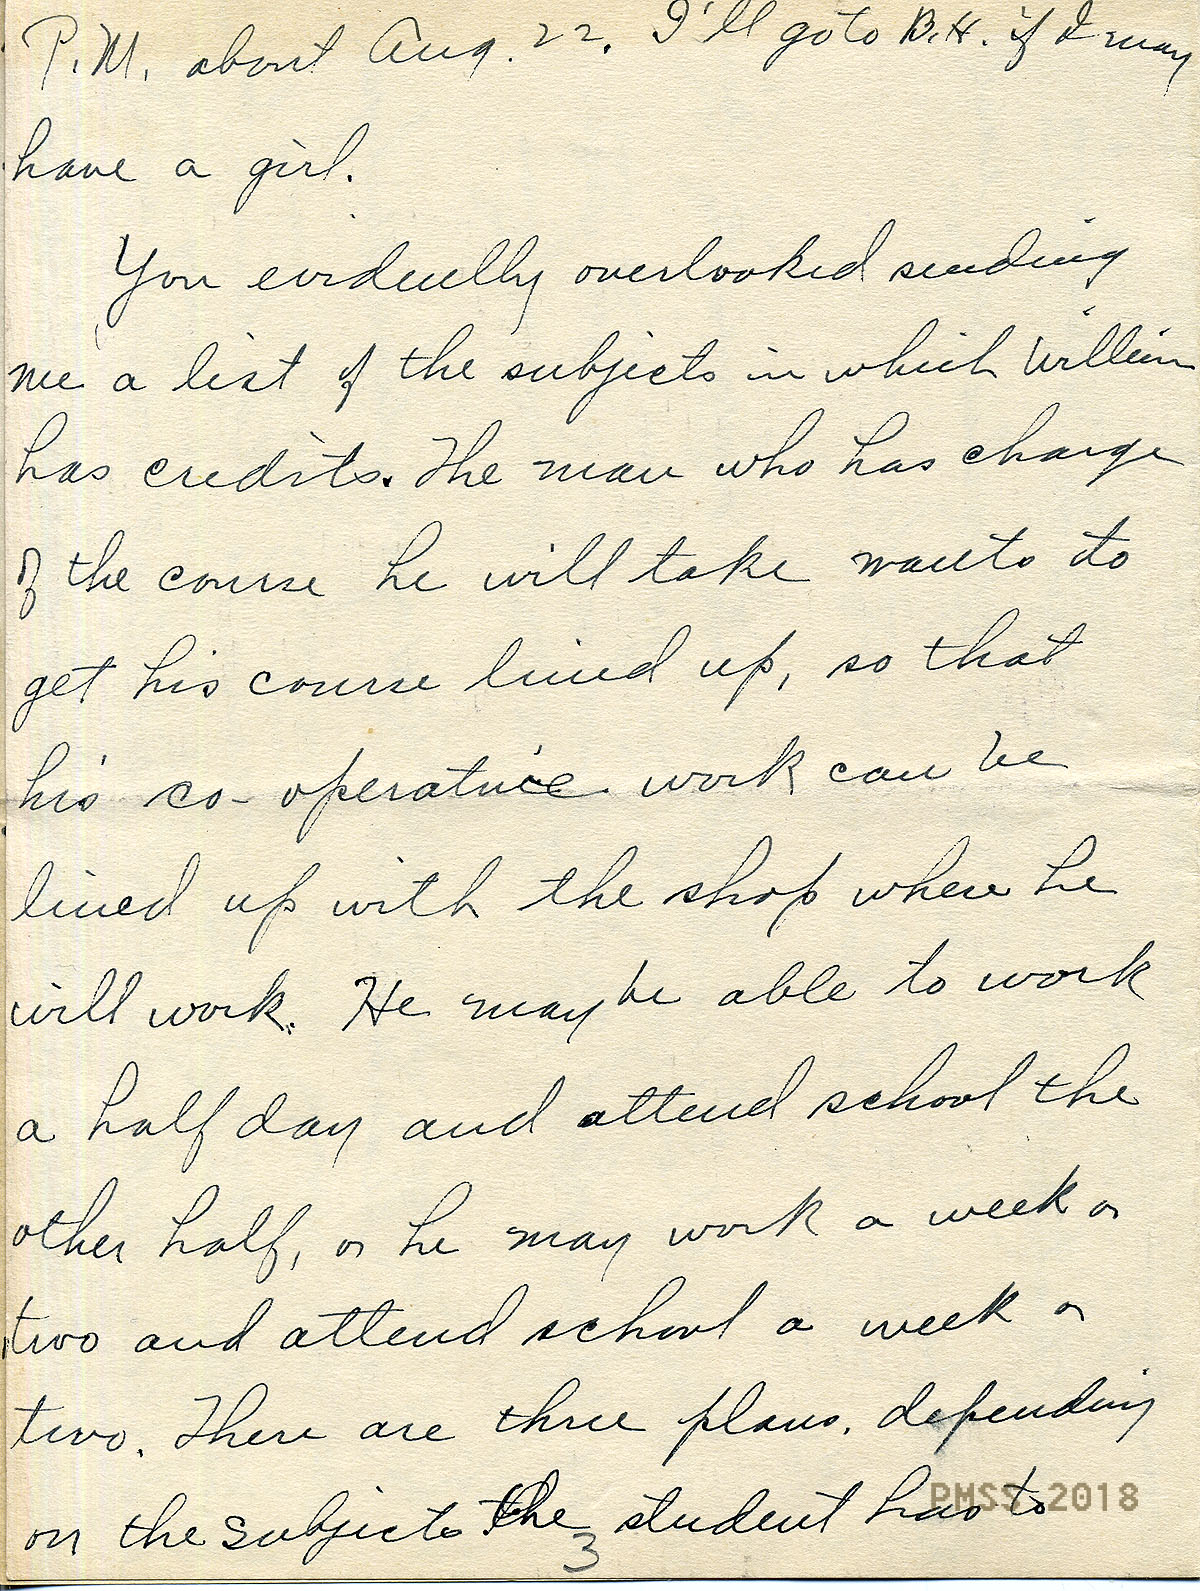 P.M. about Aug. 22. I'll go to B.H. if I may
have a girl.
You evidently overlooked sending
me a list of the subjects in which William
has credits. The man who has charge
of the course he will take wants to
get his course lined up, so that
his co-operative work can be
lined up with the shop where he
will work. He may be able to work
a half day and attend school the
other half, or he may work a week or
two and attend school a week or
two. There are three plans, depending
on the subjects the student has to
PMSS 2018
3